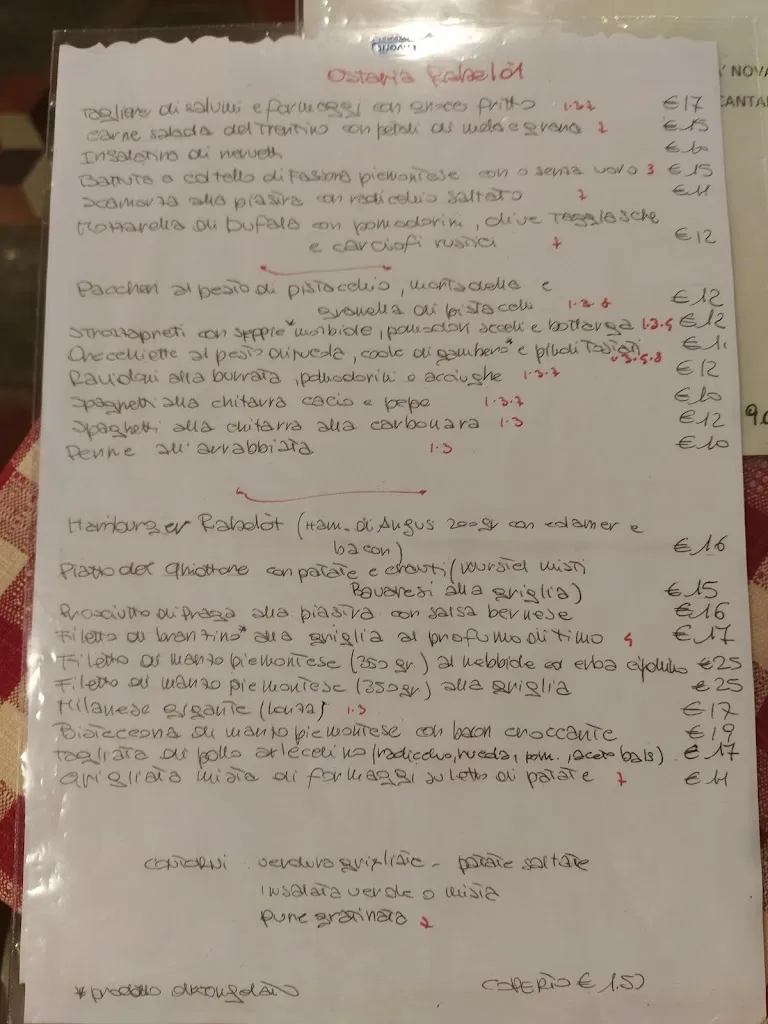 Osteria Rabelòt
Tagliere di salumi e formaggi con gnocco fritto 1.3.7 €17
Carne salada del Trentino con petali di mela e grana 7 €15
Insalatina di nervetti €10
Battuta a coltello di Fassona piemontese con o senza uovo 3 €15
Scamorza alla piastra con radicchio saltato 7 €11
Mozzarella di bufala con pomodorini, olive Taggiasche
e carciofi rustici 7 €12
Paccheri al pesto di pistacchio, mortadella e
granella di pistacchi 1.3.8 €12
Strozzapreti con seppie* morbide, pomodori secchi e bottarga 1.3.4 €12
Orecchiette al pesto di rucola, code di gambero* e pinoli tostati .3.5.8 €1
Ravioloni alla burrata, pomodorini e acciughe 1.3.7 €12
Spaghetti alla chitarra cacio e pepe 1.3.7 €10
Spaghetti alla chitarra alla carbonara 1.3 €12
Penne all'arrabbiata 1.3 €10
Hamburger Rabelòt (Ham. di Angus 200gr con edamer e
bacon) €16
Piatto del ghiottone con patate e crauti (wurstel misti
Bavaresi alla griglia) €15
Prosciutto di Praga alla piastra con salsa bernese €16
Filetto di branzino* alla griglia al profumo di timo 4 €17
Filetto di manzo piemontese (250 gr.) al nebbiolo ed erba cipollina €25
Filetto di manzo piemontese (350gr) alla griglia €25
Milanese gigante (lonza) 1.3 €17
Bisteccona di manzo piemontese con bacon croccante €19
Tagliata di pollo arlecchino (radicchio, rucola, pom., aceto bals) €17
Grigliata mista di formaggi su letto di patate 7 €11
CONTORNI verdure grigliate - patate saltate
insalata verde o mista
pure gratinata 7
*prodotto decongelato COPERTO € 1.50
NOVA
CANTA
9.0